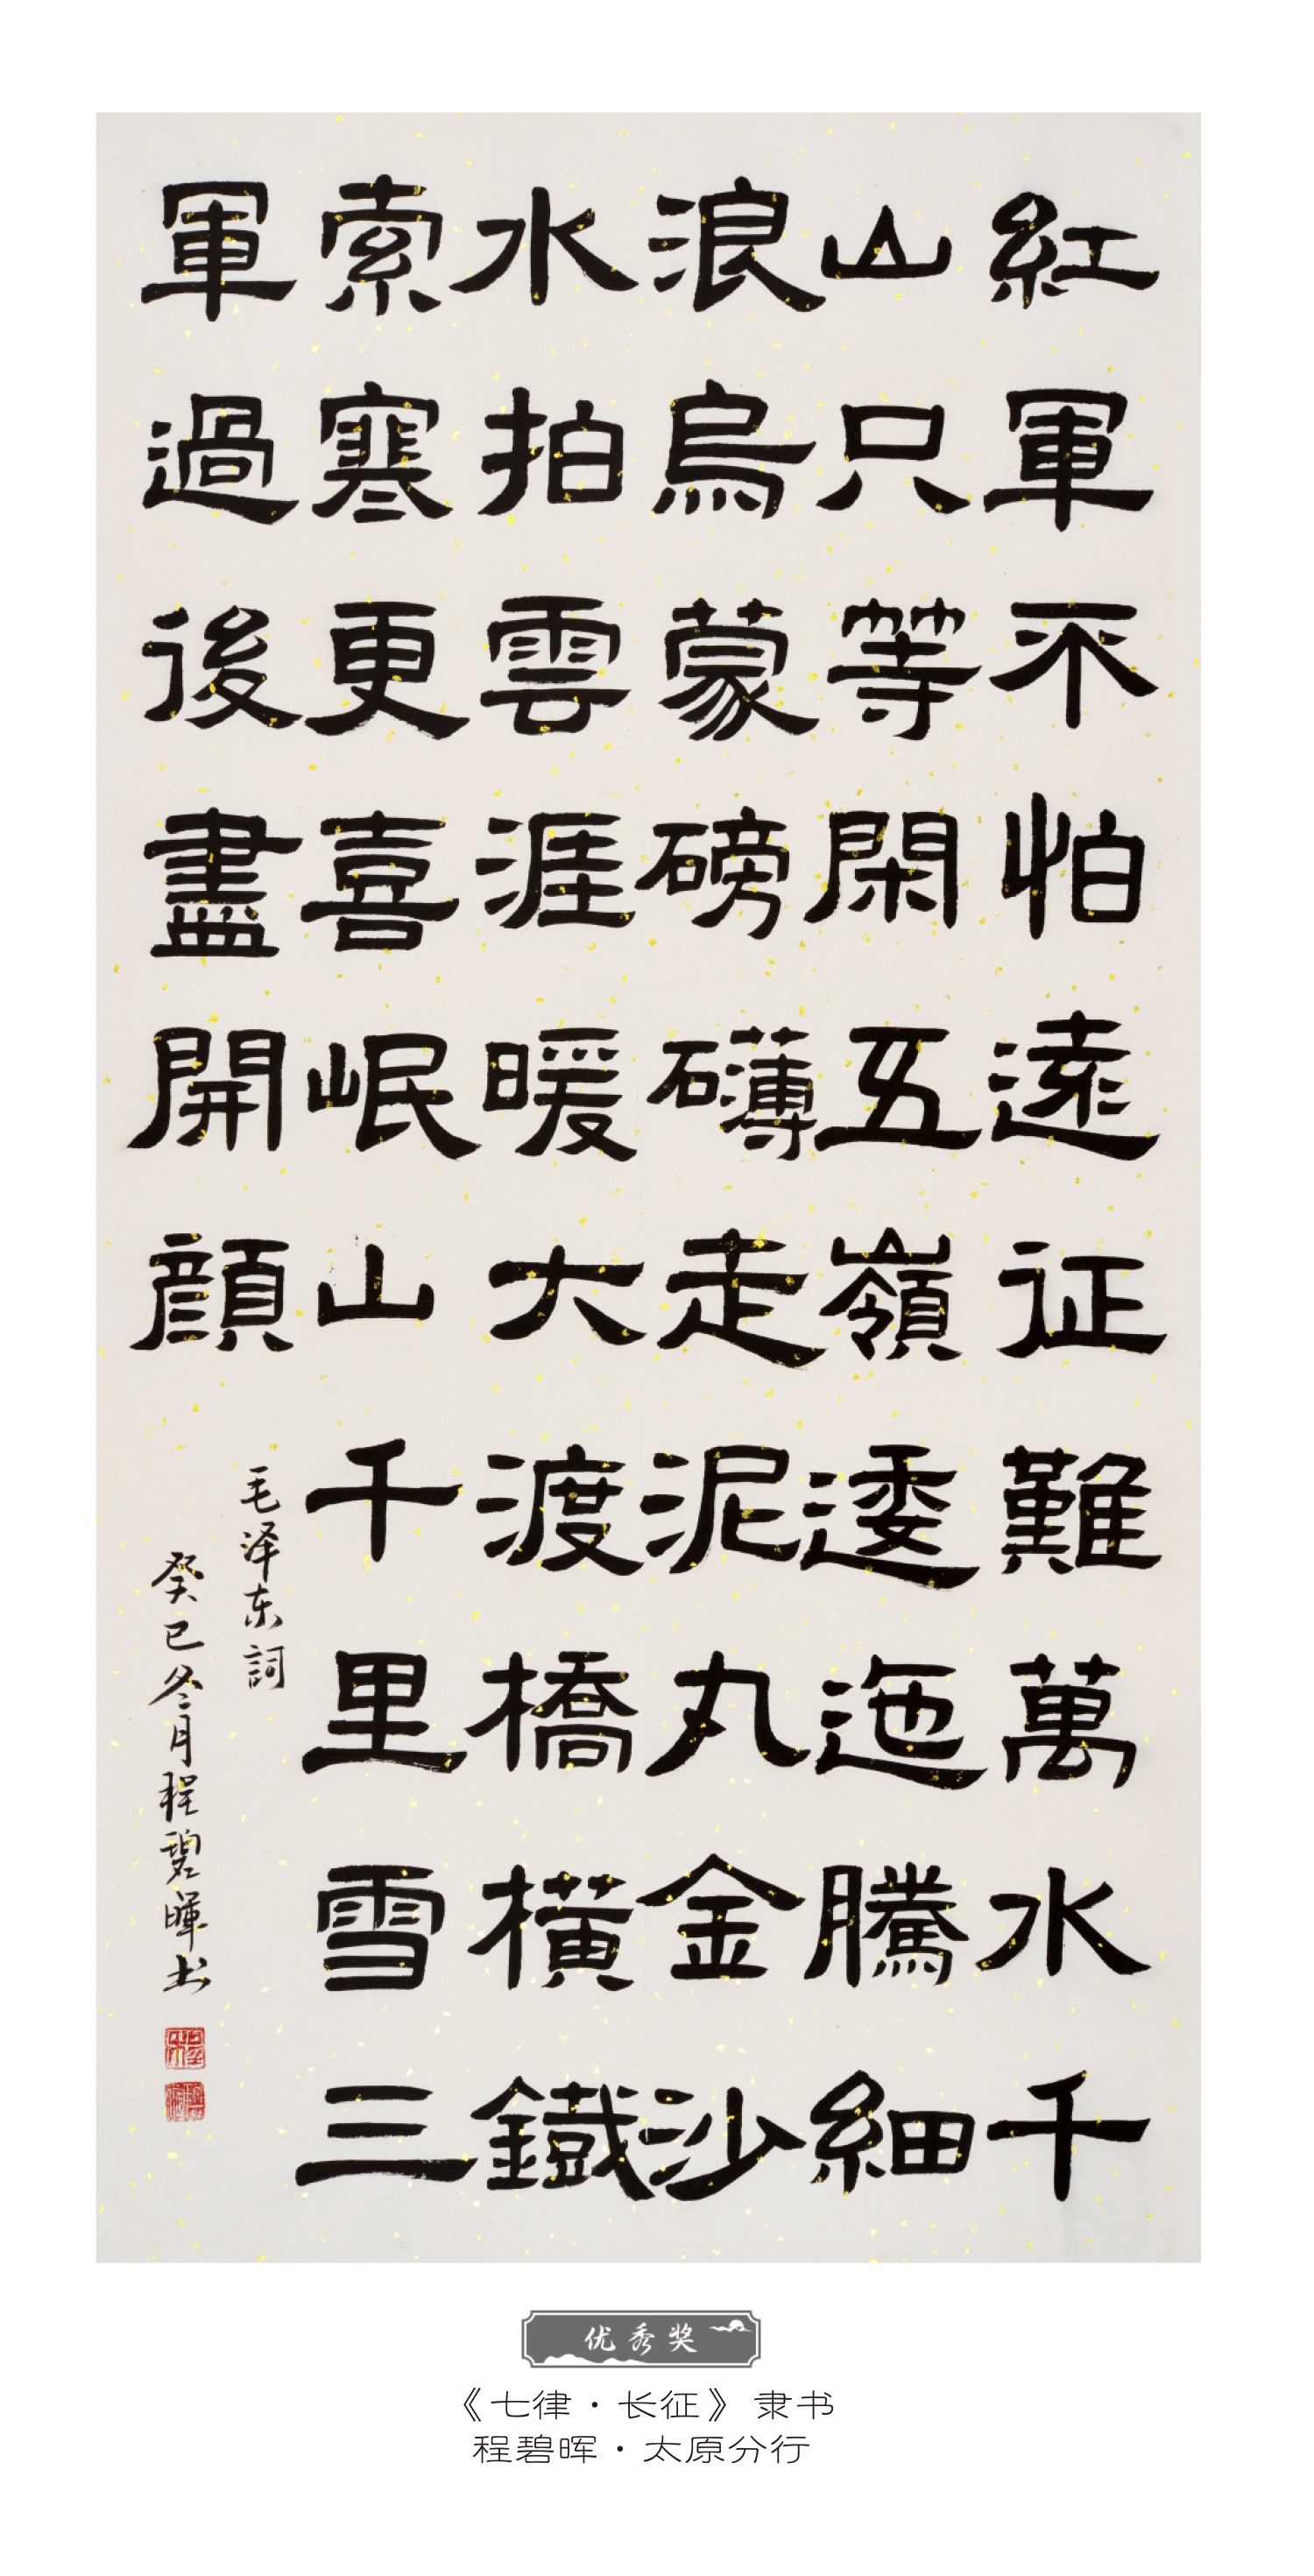 紅軍不怕遠征難萬水千
山只等閑五嶺逶迤騰細
浪烏蒙磅礴走泥丸金沙
水拍雲涯暖大渡橋橫鐵
索寒更喜岷山千里雪三
軍過後盡開顔
毛泽东詞
癸巳冬月程碧暉书
优秀奖
《七律·长征》隶书
程碧晖·太原分行